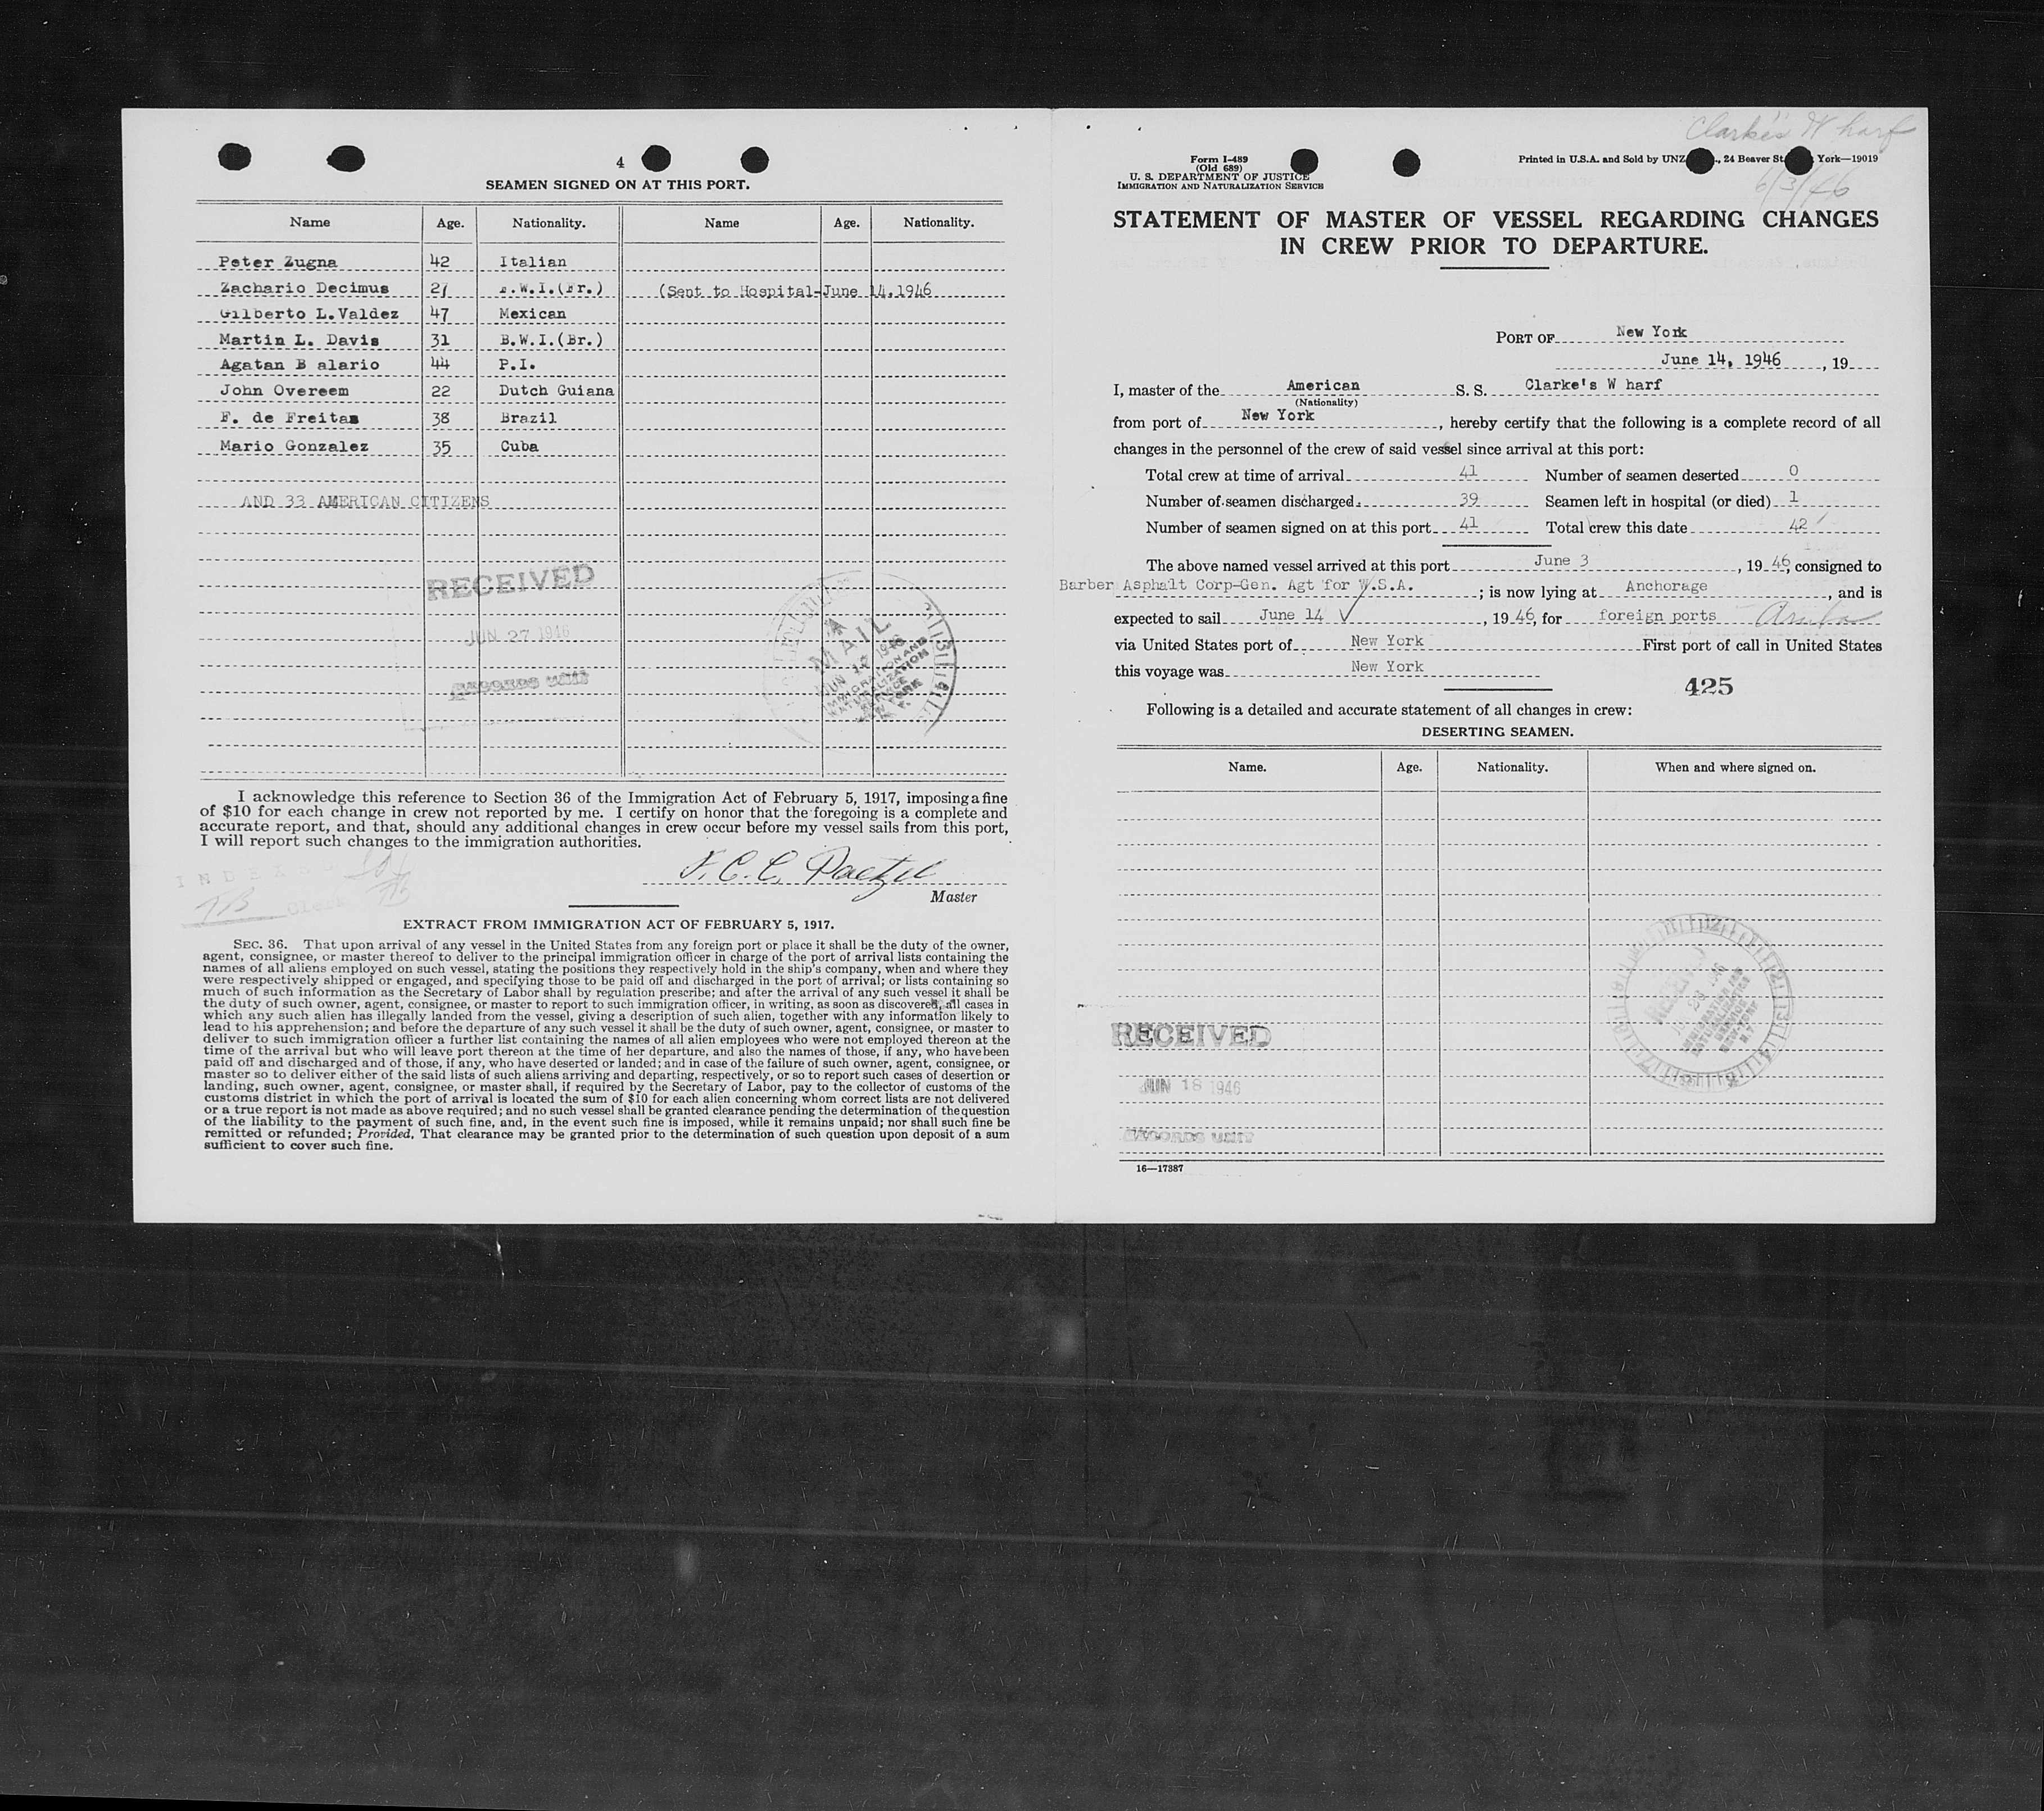 4
SEAMEN SIGNED ON AT THIS PORT.
Name Age. Nationality. Name Age. Nationality.
Peter Zugna 42 Italian
Zachario Decimus 27 B.W.I.(Br.) (Sent to Hospital-June 14,1946
Gilberto L.Valdez 47 Mexican
Martin L. Davis 31 B.W.I.(Br.)
Agatan B alario 44 P.I.
John Overeem 22 Dutch Guiana
F. de Freitas 38 Brazil
Mario Gonzalez 35 Cuba
AND 33 AMERICAN CITIZENS
RECEIVED
JUN 27 1946
RECORDS UNIT
MAIL
IMMIGRATION AND
NATURALIZATION
SERVICE
NEW YORK
I acknowledge this reference to Section 36 of the Immigration Act of February 5, 1917, imposing a fine
of $10 for each change in crew not reported by me. I certify on honor that the foregoing is a complete and
accurate report, and that, should any additional changes in crew occur before my vessel sails from this port,
I will report such changes to the immigration authorities.
Master
EXTRACT FROM IMMIGRATION ACT OF FEBRUARY 5, 1917.
SEC. 36. That upon arrival of any vessel in the United States from any foreign port or place it shall be the duty of the owner,
agent, consignee, or master thereof to deliver to the principal immigration officer in charge of the port of arrival lists containing the
names of all aliens employed on such vessel, stating the positions they respectively hold in the ship's company, when and where they
were respectively shipped or engaged, and specifying those to be paid off and discharged in the port of arrival; or lists containing so
much of such information as the Secretary of Labor shall by regulation prescribe; and after the arrival of any such vessel it shall be
the duty of such owner, agent, consignee, or master to report to such immigration officer, in writing, as soon as discovered, all cases in
which any such alien has illegally landed from the vessel, giving a description of such alien, together with any information likely to
lead to his apprehension; and before the departure of any such vessel it shall be the duty of such owner, agent, consignee, or master to
deliver to such immigration officer a further list containing the names of all alien employees who were not employed thereon at the
time of the arrival but who will leave port thereon at the time of her departure, and also the names of those, if any, who have been
paid off and discharged and of those, if any, who have deserted or landed; and in case of the failure of such owner, agent, consignee, or
master so to deliver either of the said lists of such aliens arriving and departing, respectively, or so to report such cases of desertion or
landing, such owner, agent, consignee, or master shall, if required by the Secretary of Labor, pay to the collector of customs of the
customs district in which the port of arrival is located the sum of $10 for each alien concerning whom correct lists are not delivered
or a true report is not made as above required; and no such vessel shall be granted clearance pending the determination of the question
of the liability to the payment of such fine, and, in the event such fine is imposed, while it remains unpaid; nor shall such fine be
remitted or refunded; Provided, That clearance may be granted prior to the determination of such question upon deposit of a sum
sufficient to cover such fine.
Clarke's Wharf
6/3/46
Form I-489
(Old 689)
U. S. DEPARTMENT OF JUSTICE
IMMIGRATION AND NATURALIZATION SERVICE
Printed in U.S.A. and Sold by UNZ ., 24 Beaver St. York—19019
STATEMENT OF MASTER OF VESSEL REGARDING CHANGES
IN CREW PRIOR TO DEPARTURE.
PORT OF New York
June 14, 1946, 19
I, master of the American S. S. Clarke's W harf
(Nationality)
from port of New York, hereby certify that the following is a complete record of all
changes in the personnel of the crew of said vessel since arrival at this port:
Total crew at time of arrival 41 Number of seamen deserted 0
Number of seamen discharged 39 Seamen left in hospital (or died) 1
Number of seamen signed on at this port 41 Total crew this date 42
The above named vessel arrived at this port June 3, 19 46, consigned to
Barber Asphalt Corp-Gen. Agt for W.S.A.; is now lying at Anchorage, and is
expected to sail June 14 ✓, 19 46, for foreign ports Aruba
via United States port of New York First port of call in United States
this voyage was New York
425
Following is a detailed and accurate statement of all changes in crew:
DESERTING SEAMEN.
Name. Age. Nationality. When and where signed on.
RECEIVED
JUN 18 1946
RECORDS UNIT
16—17387